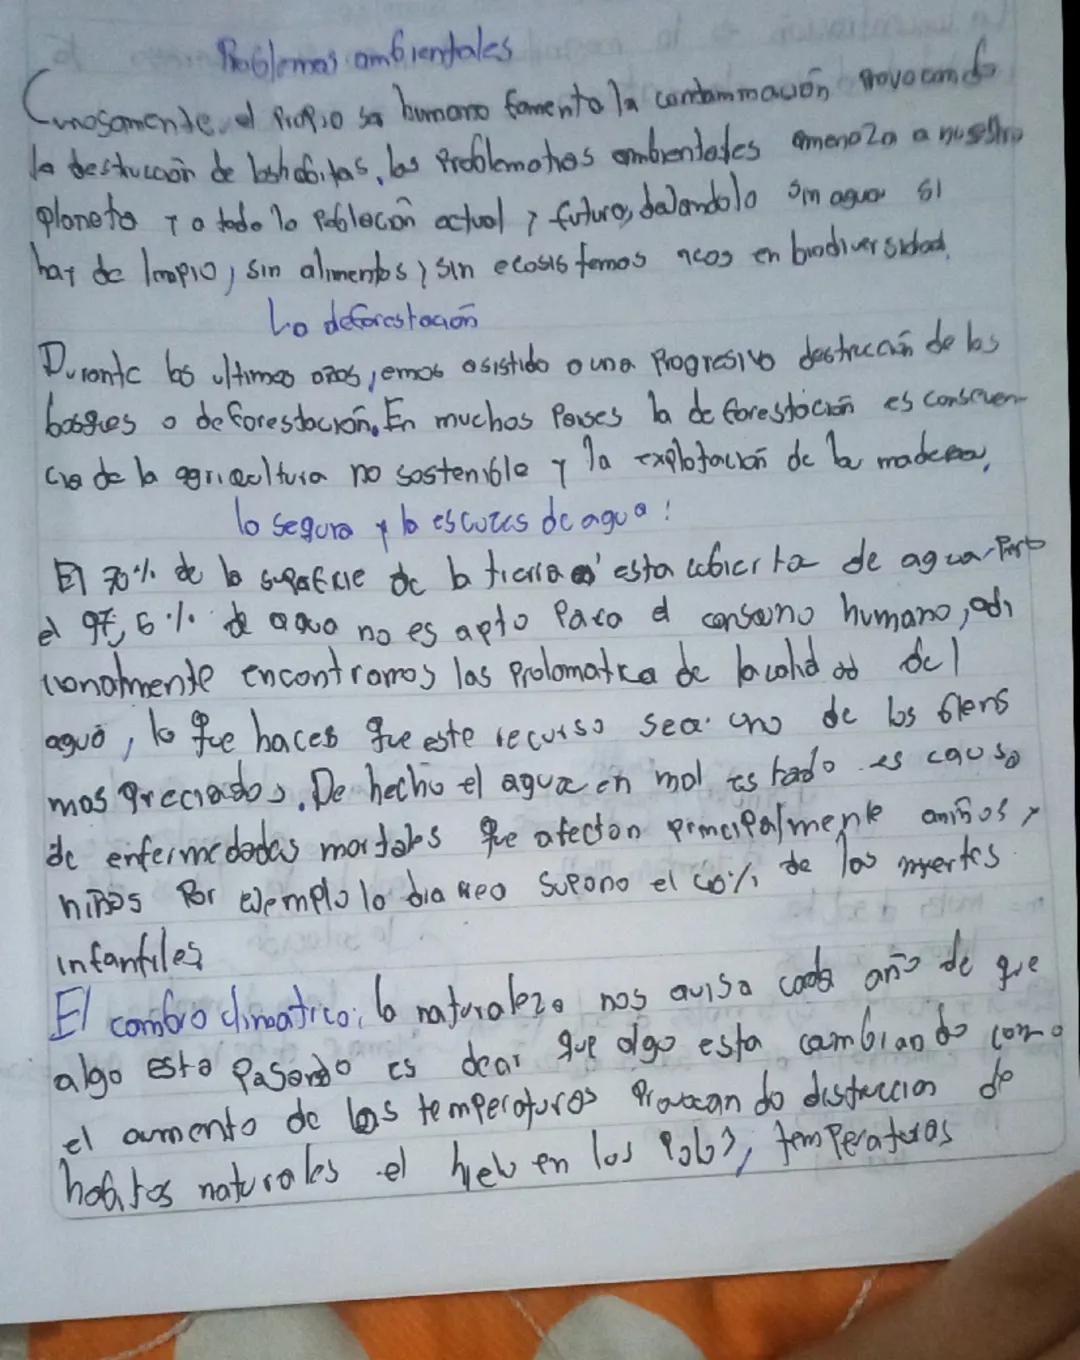 Problemas ambientales
Curiosamente, el propio ser humano fomenta la contaminación provocando
la destrucción de los habitas, las problematicas ambientales amenaza a nuestro
planeta y a toda la población actual y futura, dejandola sin agua si
hay de limpio, sin alimentos y sin ecosistemas ricos en biodiversidad.
La deforestación
Durante los ultimos años, emos asistido a una progresiva destrucción de los
bosques o deforestación. En muchos paises la deforestación es consecuen-
cia de la agricultura no sostenible y la explotación de la madera.
la segura y la escazes de agua:
El 70% de la superficie de la tierra esta cubierta de agua. Pero
el 97,6% de agua no es apto para el consumo humano, adi
cionalmente encontramos las prolomatica de la calidad del
agua, lo que haces que este recurso sea uno de los biens
mas preciados. De hecho el agua en mal estado es causa
de enfermedades mortales que afectan principalmente aniños y
niños Por ejemplo la diarreo supono el 60% de las muertes
infantiles
El cambio climatico: la naturaleza nos avisa cada año de que
algo esta pasando es decir que algo esta cambiando como
el aumento de las temperaturas provocando distruccion de
habitos naturales el hielo en los polos, temperaturas